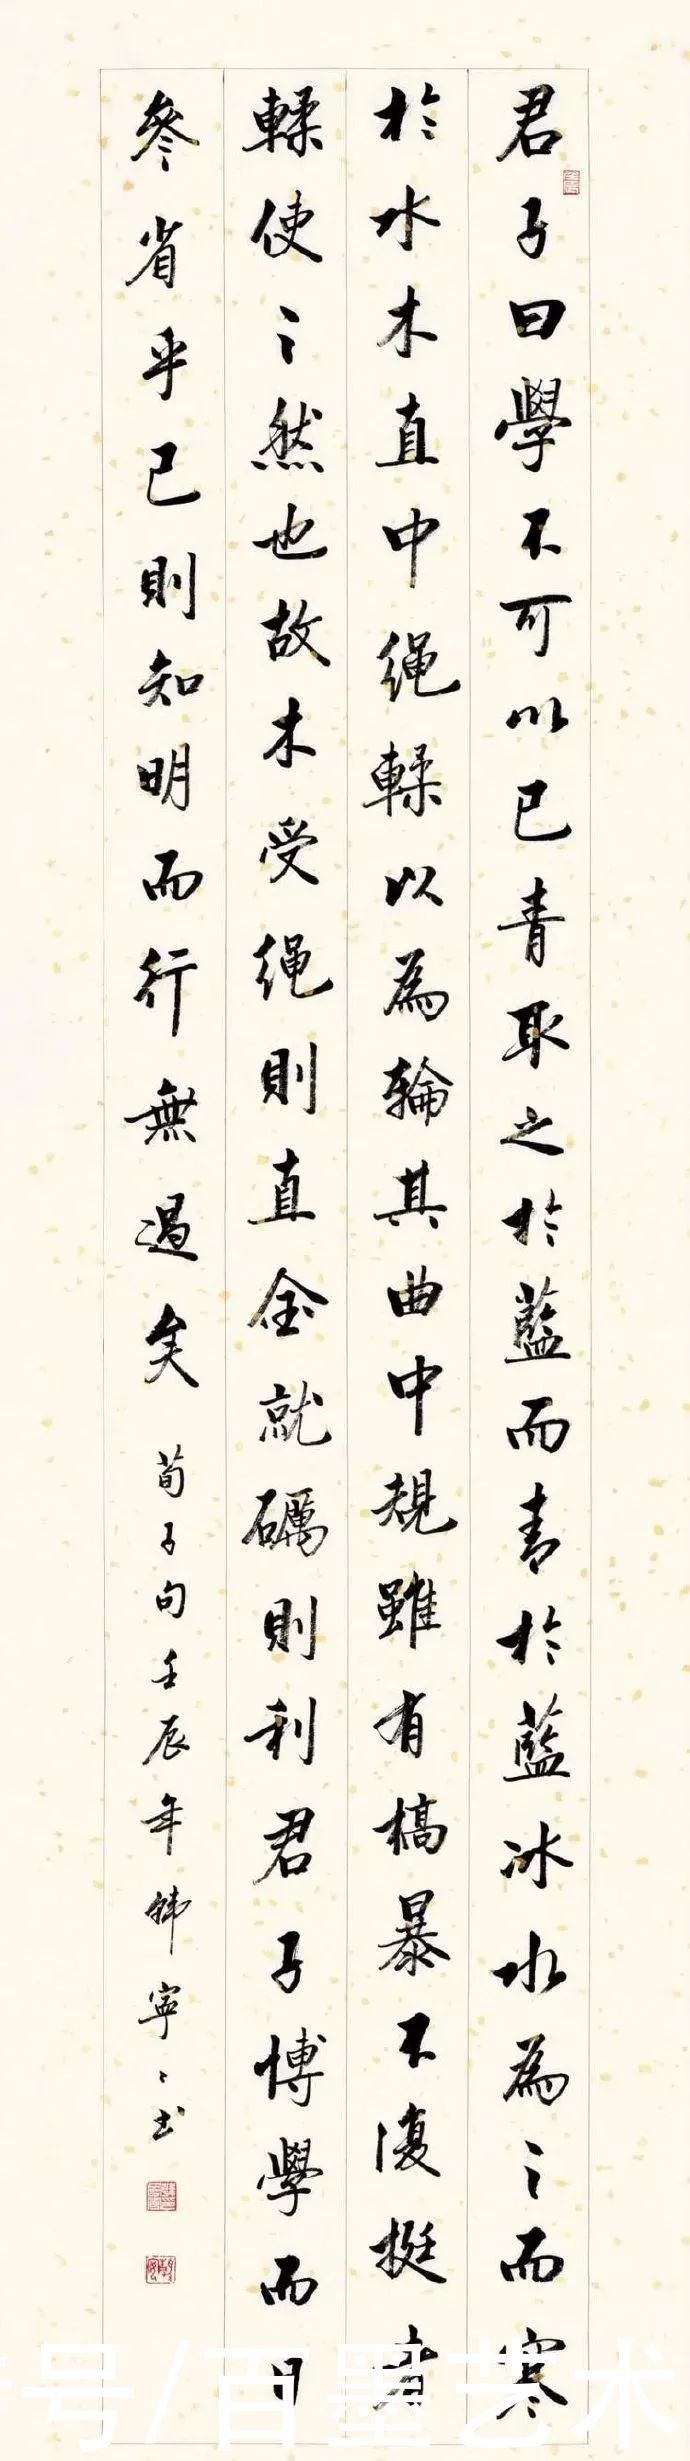 君子曰學不可以已青取之於藍而青於藍冰水為之而寒
於水木直中绳輮以為輪其曲中規雖有槁暴不復挺者
輮使之然也故木受绳則直金就礪則利君子博學而日
參省乎己則知明而行無過矣
荀子句壬辰年韓寧寧书
号/百墨艺术